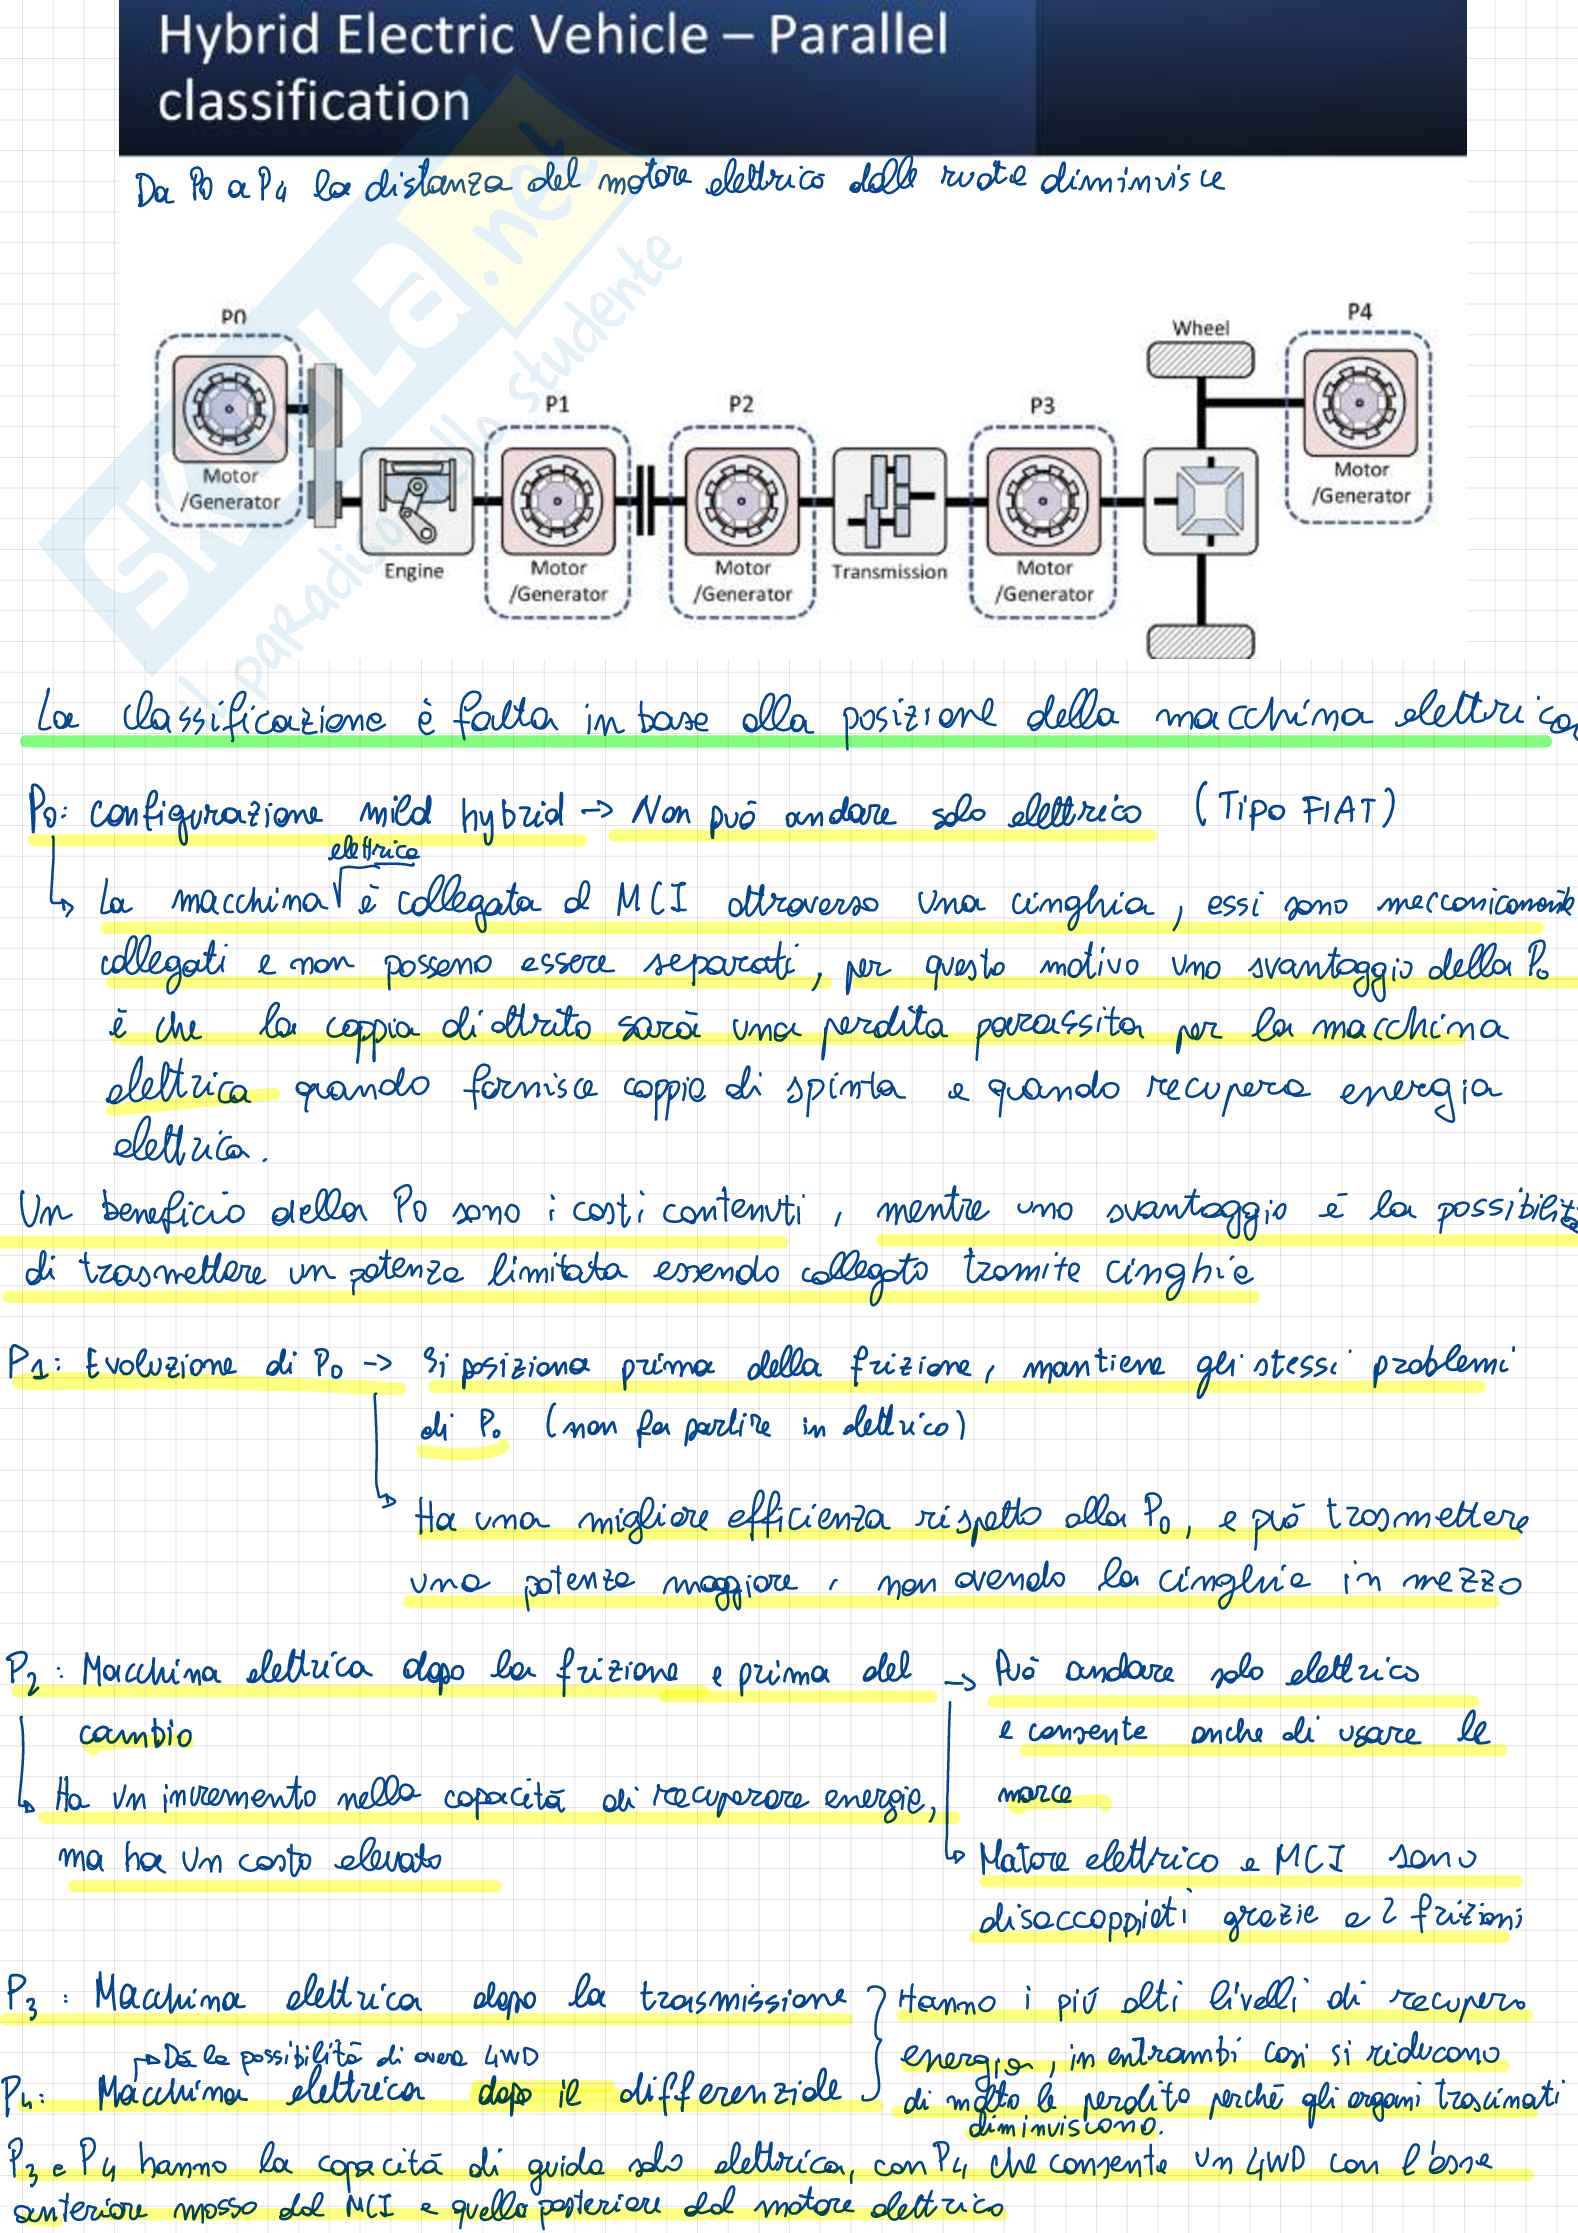 Hybrid Electric Vehicle – Parallel
classification
Da P0 a P4 la distanza del motore elettrico dalle ruote diminuisce
P0
Motor
/Generator
Engine
P1
Motor
/Generator
P2
Motor
/Generator
Transmission
P3
Motor
/Generator
Wheel
P4
Motor
/Generator
SKUOLA.net
il paradiso dello studente
La classificazione è fatta in base alla posizione della macchina elettrica
P0: configurazione mild hybrid -> Non può andare solo elettrico (Tipo FIAT)
elettrica
La macchina è collegata al MCI attraverso una cinghia, essi sono meccanicamente
collegati e non possono essere separati, per questo motivo uno svantaggio della P0
è che la coppia di attrito sarà una perdita parassita per la macchina
elettrica quando fornisce coppia di spinta e quando recupera energia
elettrica.
Un beneficio della P0 sono i costi contenuti, mentre uno svantaggio è la possibilità
di trasmettere un potenza limitata essendo collegato tramite cinghie
P1: Evoluzione di P0 -> Si posiziona prima della frizione, mantiene gli stessi problemi
di P0 (non fa partire in elettrico)
Ha una migliore efficienza rispetto alla P0, e può trasmettere
una potenza maggiore, non avendo la cinghia in mezzo
P2: Macchina elettrica dopo la frizione e prima del -> Può andare solo elettrico
cambio
e consente anche di usare le
Ha un incremento nella capacità di recuperare energie,
marce
ma ha un costo elevato
Motore elettrico e MCI sono
disaccoppiati grazie a 2 frizioni
P3: Macchina elettrica dopo la trasmissione
Hanno i più alti livelli di recupero
Dà la possibilità di avere 4WD
energia, in entrambi i casi si riducono
P4: Macchina elettrica dopo il differenziale
di molto le perdite perché gli organi trascinati
diminuiscono.
P3 e P4 hanno la capacità di guida solo elettrica, con P4 che consente un 4WD con l'asse
anteriore mosso dal MCI e quello posteriore dal motore elettrico